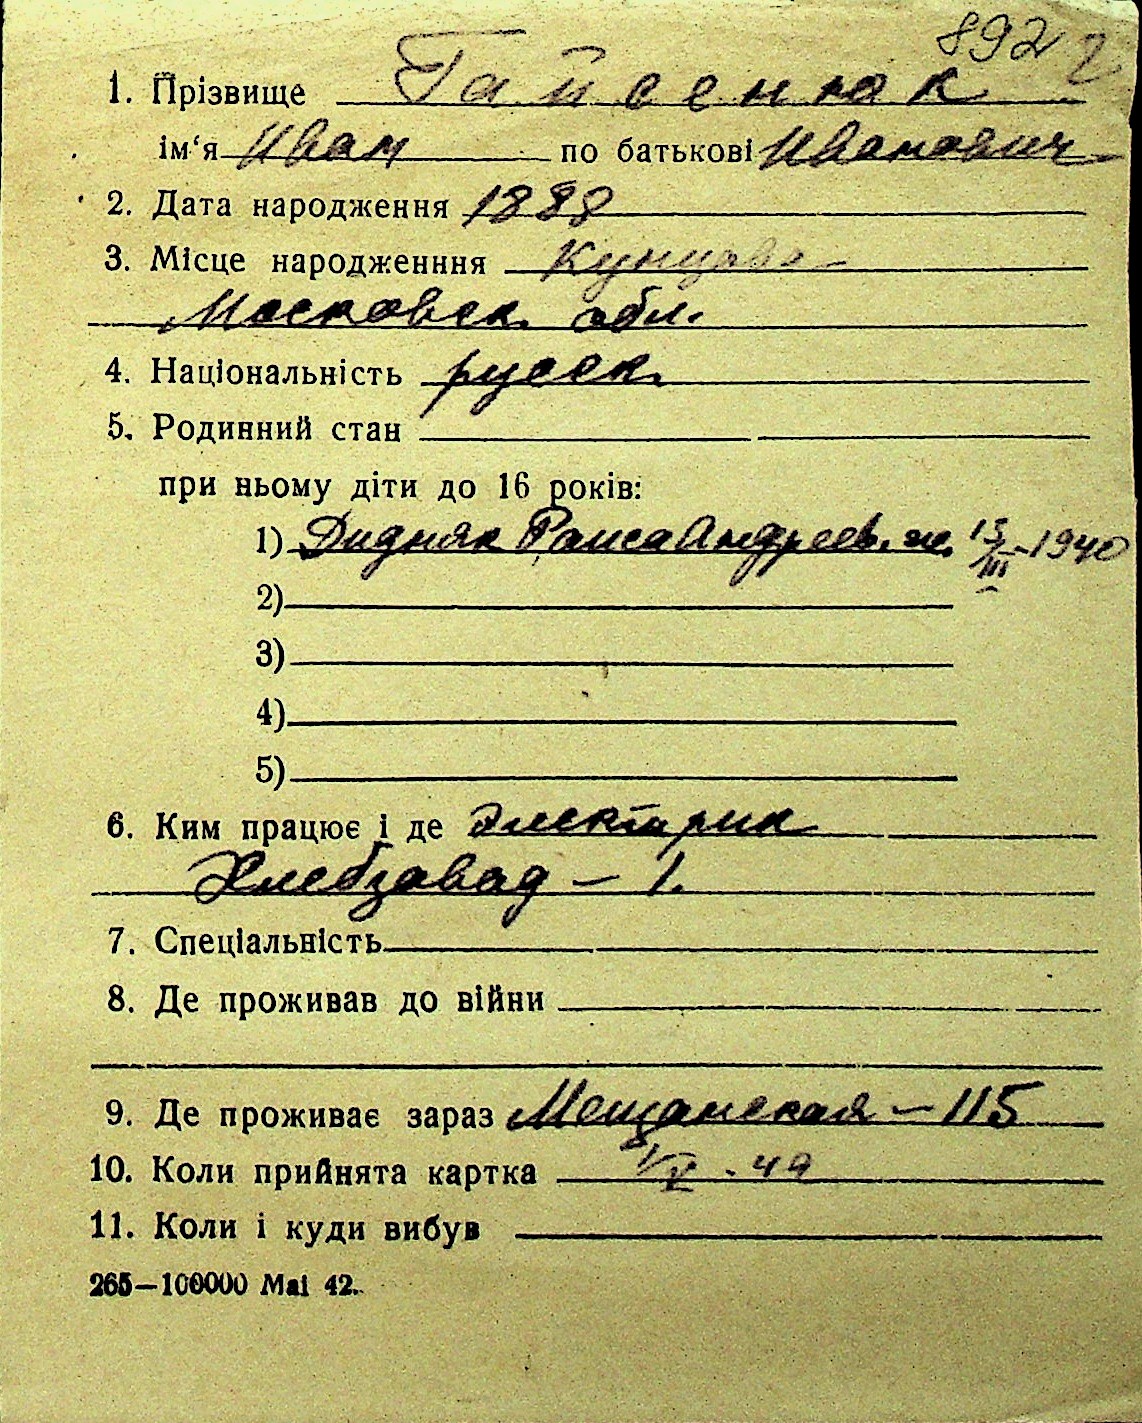 892 2
1. Прізвище Гайсенюк
ім‘я Иван по батькові Иванович
2. Дата народження 1888
3. Місце народженння Кунцово
Московск. обл.
4. Національність русск.
5. Родинний стан
при ньому діти до 16 років:
1) Дидняк Раиса Андреев. ж. 15/III-1940
2)
3)
4)
5)
6. Ким працює і де электрик
Хлебзавод – 1.
7. Спеціальність
8. Де проживав до війни
9. Де проживає зараз Мещанская – 115
10. Коли прийнята картка
11. Коли і куди вибув
265—100000 Маі 42.